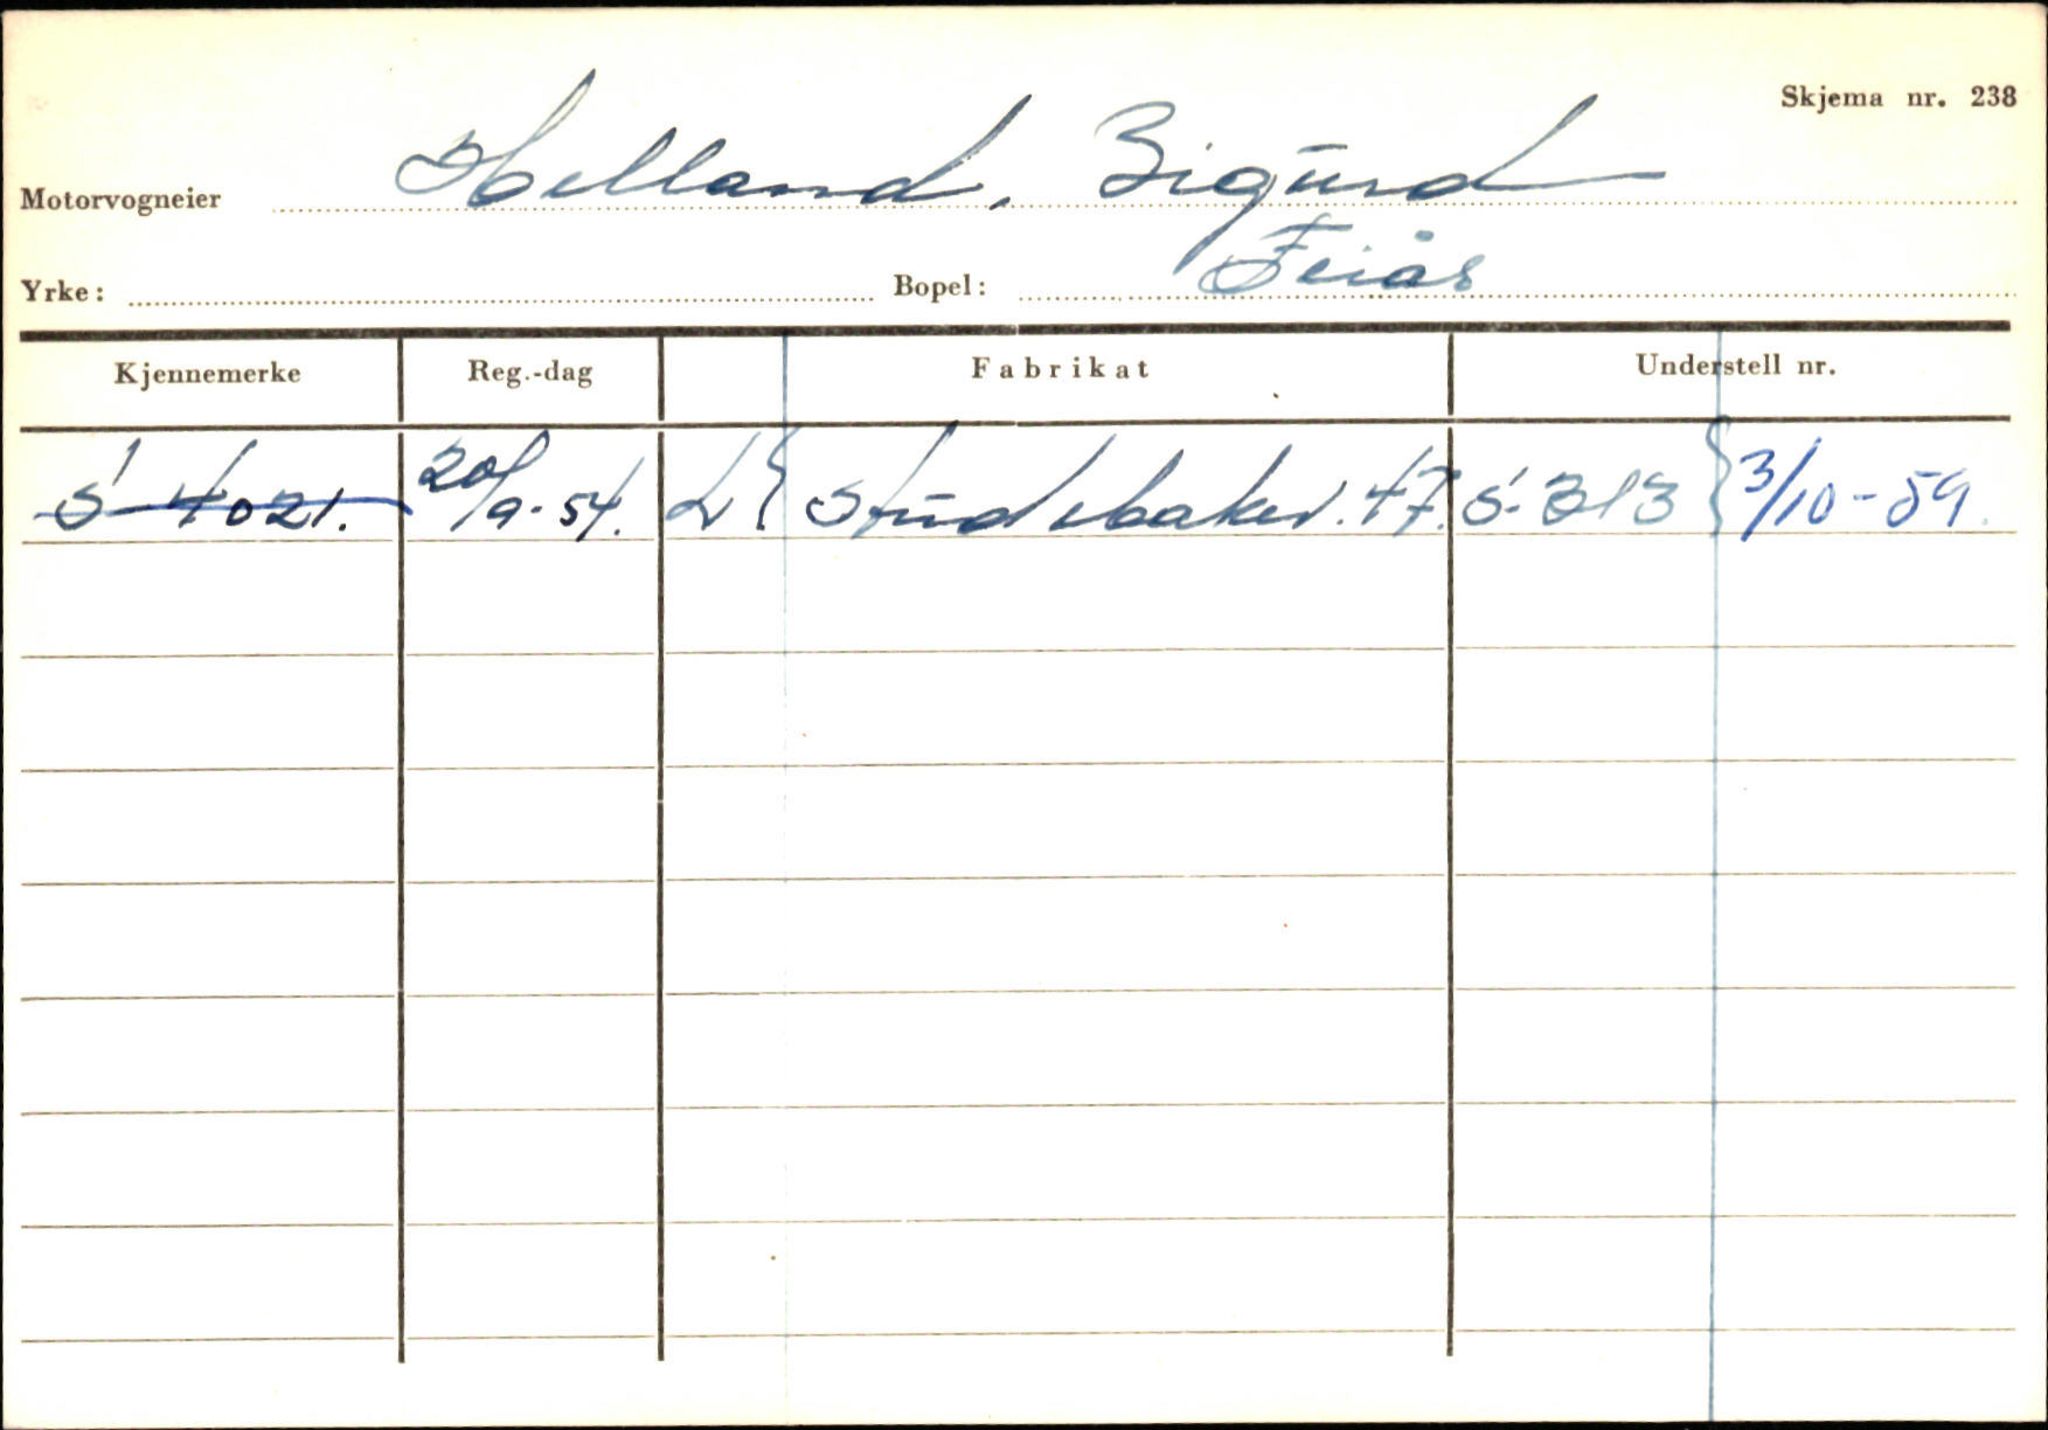 Skjema nr. 238
Motorvogneier Helland, Sigurd
Yrke: Bopel: Feiås
Kjennemerke Reg.-dag Fabrikat Understell nr.
S-4021. 20/9-54. L { Studebaker. 47. S-313 } 3/10-59.